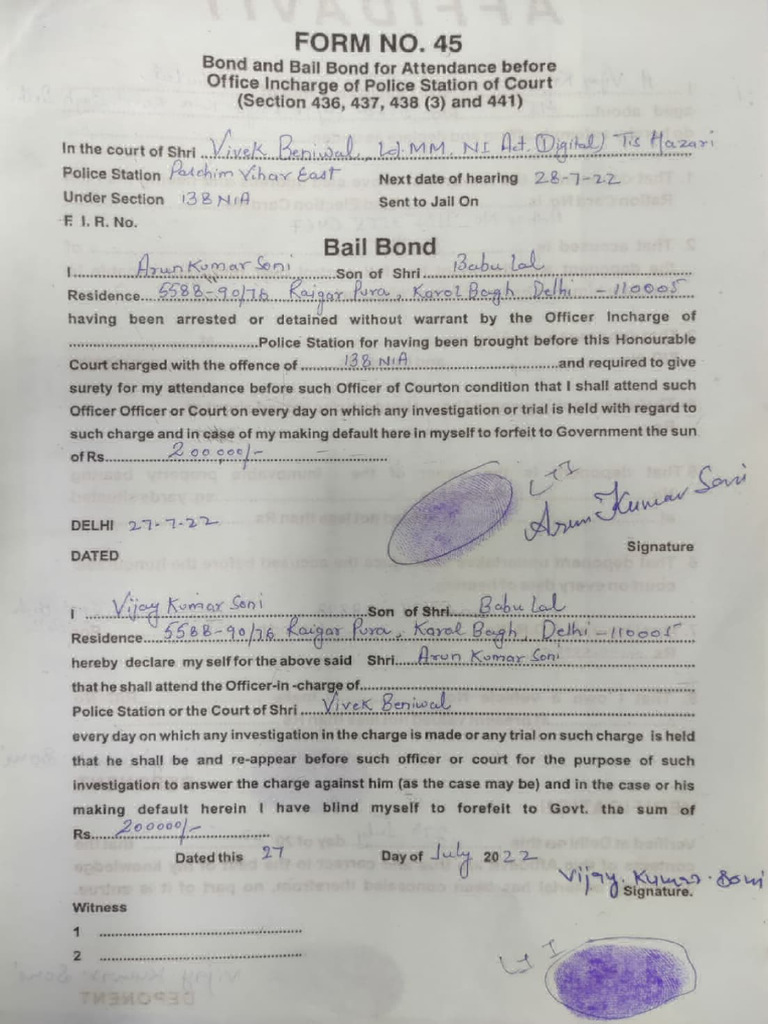 AFFIDAVIT
FORM NO. 45
Bond and Bail Bond for Attendance before
Office Incharge of Police Station of Court
(Section 436, 437, 438 (3) and 441)
In the court of Shri Vivek Beniwal, Ld. MM. NI Act. (Digital) Tis Hazari
Police Station Paschim Vihar East Next date of hearing 28-7-22
Under Section 138 NIA Sent to Jail On
F. I. R. No.
Bail Bond
I Arun Kumar Soni Son of Shri Babu Lal
Residence 5588-90/76 Raigar Pura, Karol Bagh Delhi - 110005
having been arrested or detained without warrant by the Officer Incharge of
Police Station for having been brought before this Honourable
Court charged with the offence of 138 NIA and required to give
surety for my attendance before such Officer of Courton condition that I shall attend such
Officer Officer or Court on every day on which any investigation or trial is held with regard to
such charge and in case of my making default here in myself to forfeit to Government the sun
of Rs. 200,000/-
LTI
Arun Kumar Soni
DELHI 27-7-22
Signature
DATED
I Vijay Kumar Soni Son of Shri Babu Lal
Residence 5588-90/76 Raigar Pura, Karol Bagh, Delhi - 110005
hereby declare my self for the above said Shri Arun Kumar Soni
that he shall attend the Officer-in -charge of
Police Station or the Court of Shri Vivek Beniwal
every day on which any investigation in the charge is made or any trial on such charge is held
that he shall be and re-appear before such officer or court for the purpose of such
investigation to answer the charge against him (as the case may be) and in the case or his
making default herein I have blind myself to forefeit to Govt. the sum of
Rs. 200000/-
Dated this 27 Day of July 2022
Vijay. Kumar. Soni
Signature.
Witness
1
2
LTI
DEPONENT